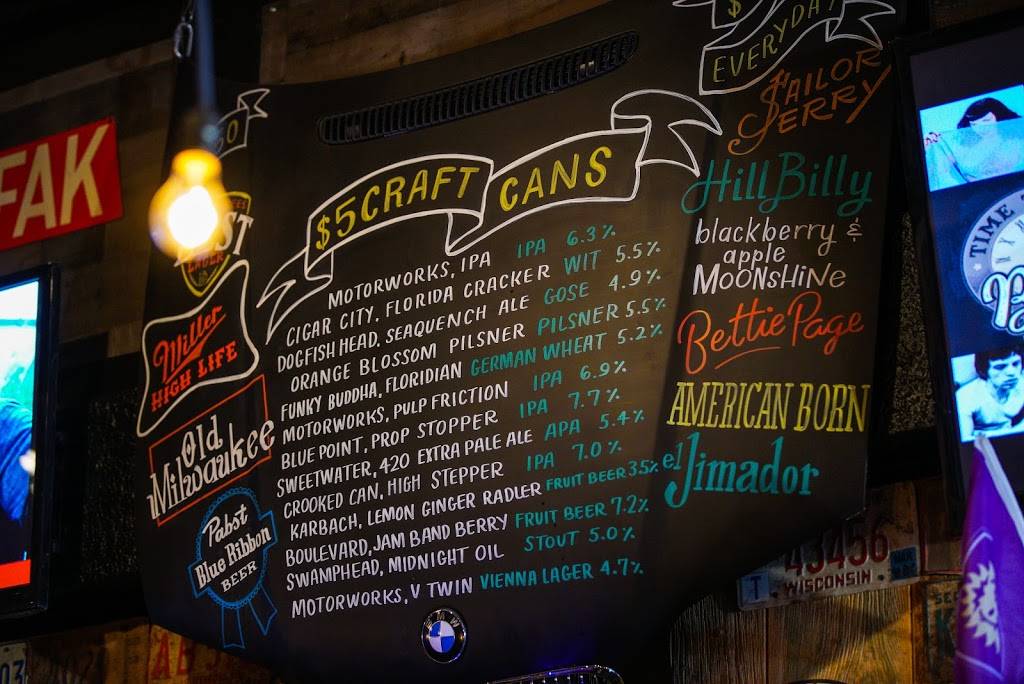 FAK
EST
LAGER
Miller
HIGH LIFE
Old
Milwaukee
Pabst
Blue Ribbon
BEER
$5 CRAFT CANS
MOTORWORKS, IPA IPA 6.3%
CIGAR CITY. FLORIDA CRACKER WIT 5.5%
DOGFISH HEAD, SEAQUENCH ALE GOSE 4.9%
ORANGE BLOSSOM PILSNER PILSNER 5.5%
FUNKY BUDDHA, FLORIDIAN GERMAN WHEAT 5.2%
MOTORWORKS, PULP FRICTION IPA 6.9%
BLUE POINT, PROP STOPPER IPA 7.7%
SWEETWATER, 420 EXTRA PALE ALE APA 5.4%
CROOKED CAN, HIGH STEPPER IPA 7.0%
KARBACH, LEMON GINGER RADLER FRUIT BEER 3.5%
BOULEVARD, JAM BAND BERRY FRUIT BEER 7.2%
SWAMPHEAD, MIDNIGHT OIL STOUT 5.0%
MOTORWORKS, V TWIN VIENNA LAGER 4.7%
BMW
$
EVERYDAY
SAILOR
JERRY
HillBilly
blackberry &
apple
MOONSHiNe
Bettie Page
AMERICAN BORN
el Jimador
TIME
43456
T WISCONSIN